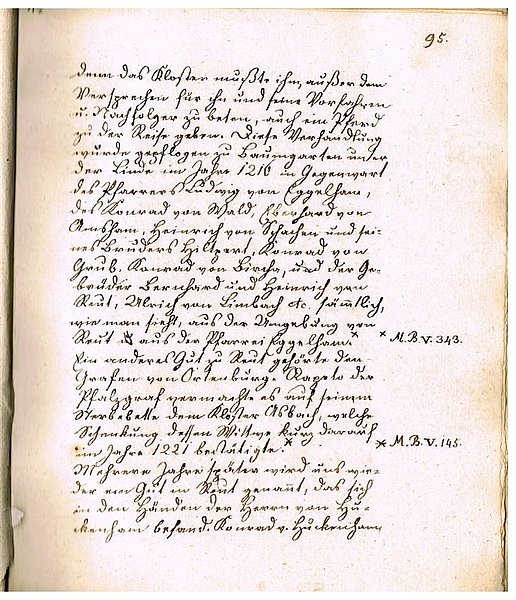 95.
denn das Kloster mußte ihm, außer dem
Versprechen für ihn und seine Vorfahren
u. Nachfolger zu beten, auch ein Pferd
zu der Reise geben. Diese Verhandlung
wurde gepflogen zu Baumgarten unter
der Linde im Jahre 1216 in Gegenwart
des Pfarrers Ludwig von Eggelham,
des Konrad von Wald, Eberhard von
Amsham, Heinrich von Schachen und sei-
nes Bruders Hiltpert, Konrad von
Grub, Konrad von Bircha, und der Ge-
brüder Bernhard und Heinrich von
Reut, Ulrich von Limbach etc. sämmtlich,
wie man sieht, aus der Umgebung von
Reut aus der Pfarrei Eggelham. × × M.B.V. 343.
Ein anderes Gut zu Reut gehörte den
Grafen von Ortenburg. Rapoto der
Pfalzgraf vermachte es auf seinem
Sterbebette dem Kloster Asbach, welche
Schenkung dessen Wittwe kurz darauf
im Jahre 1221 bestätigte. × × M.B.V. 145.
Mehrere Jahre später wird uns wie-
der ein Gut in Reut genannt, das sich
in den Händen der Herrn von Hu-
ckenham befand. Konrad v. Huckenham